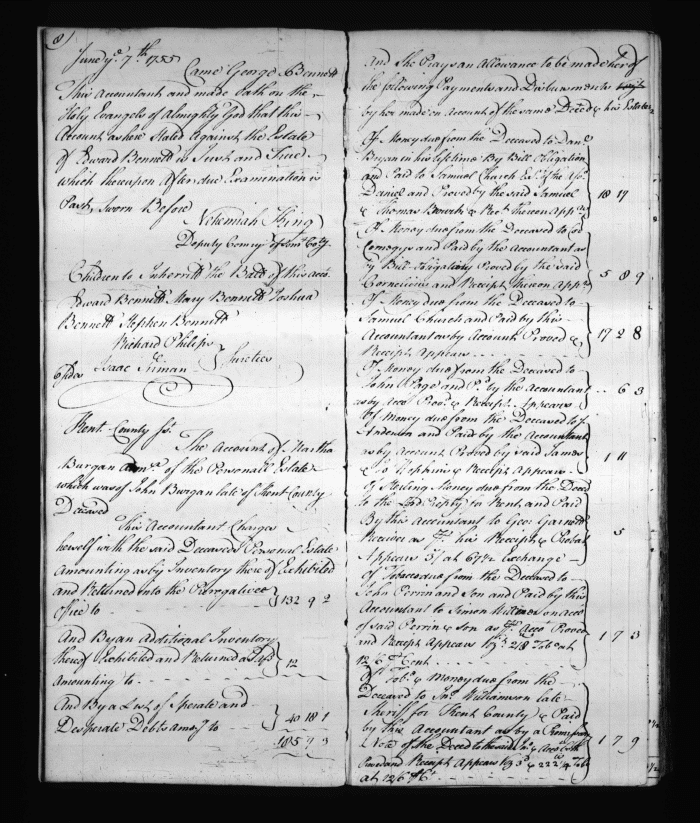 8)
June ye. 7th. 1755
Came George Bennett
This Accountant and made Oath on the
Holy Evangels of Almighty God that this
Account as here Stated Against the Estate
of Edward Bennett is Just and True
which thereupon After due Examination is
Past, Sworn Before
Nehemiah King
Deputy Comry. of Som. Coty.
Children to Inherritt the Balla of this acco.
Edward Bennett Mary Bennett Joshua
Bennett Stephen Bennett
Richard Philips
Isaac Inman } Sureties
6 sides
Kent County Sst.
The Account of Martha
Burgan Admx. of the Personall Estate
which was of John Burgan late of Kent County
Deceased
This Accountant Charges
herself with the said Deceaseds Personal Estate
amounting as by Inventory there of Exhibited
and Returned into the Perogative
Office to } 132 9 2
And By an Additional Inventory
thereof Exhibited and Returned
amounting to } 12
And By a List of Sperate and
Desperate Debts amog. to } 40 18 1
185 7 3
And She Prays an Allowance to be made her of
the following Payments and Disbursments
by her made on Account of the same Deced. & his Estate
Of Money due from the Deceased to Danl.
Bryan in his lifetime By Bill Obligation
and Paid to Samuel Church
Daniel and Proved by the said Samuel
& Thomas Bowers & Rect. thereon Appears } 18 17
Of Money due from the Deceased to Cor
Comegys and Paid by the Accountant as
by Bill Obligatory Proved by the said
Cornelius and Receipt thereon Appr. } 5 8 9
Of Money due from the Deceased to
Samuel Church and Paid by this
Accountant as by Account Proved &
Receipt Appears } 17 2 8
Of Money due from the Deceased to
John Page and Pd. by the Accountant
as by Acco. Prov. & Receipt Appears } 6 3
Of Money due from the Deceased to J.
Anderson and Paid by the Accountant
as by Account Proved by said James
& Receipt Appears } 1 11
Of Sterling Money due from the Deced.
to the Ld. Propty for Rent, and Paid
By this Accountant to Geo: Garnett
Receiver as Pr. his Receipt & Probat
Appears 3/ at 67½ Exchange } 5
Of Tobacco due from the Deceased to
John Perrin and Son and Paid by this
Accountant to Simon Wilmer on Acco.
of said Perrin & Son as Pr. Acco. Proven
and Receipt Appears 218 Tob. at
12/6 Pr. Cent } 1 7 3
Of Tob. & Money due from the
Deceased to Jno. Williamson late
Sheriff for Kent County & Paid
by this Accountant as by a Promissory
Note of the Deced. to the said
Proved and Receipt Appears & 222 Tob.
at 12/6 Pr. Ct. } 1 7 9